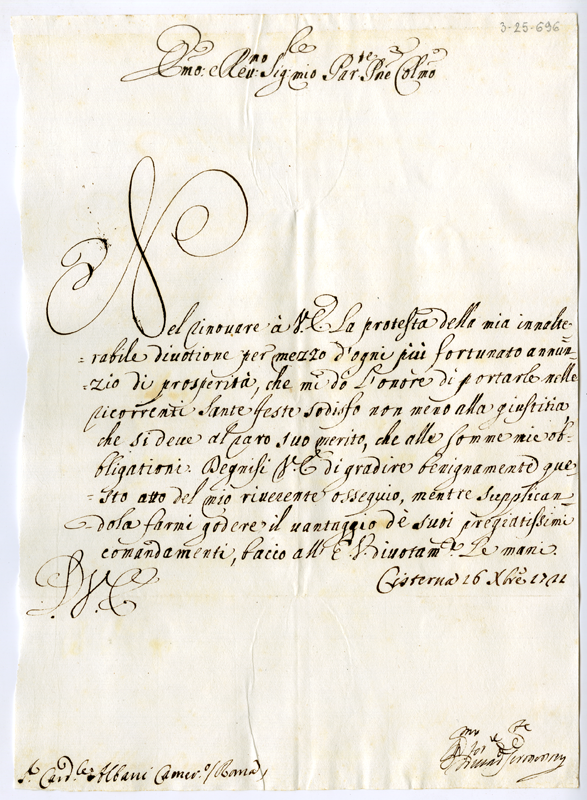 3-25-696
Emo: e Revmo Sig: mio Par.te Pne Colmo
Nel rinovare à V.E. la protesta della mia inalte=
=rabile divotione per mezzo d'ogni più fortunato annun=
=zio di prosperità, che mi dò l'onore di portarle nelle
ricorrenti Sante feste sodisfo non meno alla giustitia
che si deve al raro suo merito, che alle somme mie ob=
bligationi. Degnisi V.E. di gradire benignamente que=
=sto atto del mio riverente ossequio, mentre supplican=
=dola farmi godere il vantaggio dè suoi pregiatissimi
comandamenti, bacio all'E.V. divotam.te le mani.
Cisterna 16 Xbre 1721
D.V.E.
Sr. Card.le Albani Camer.o / Roma /